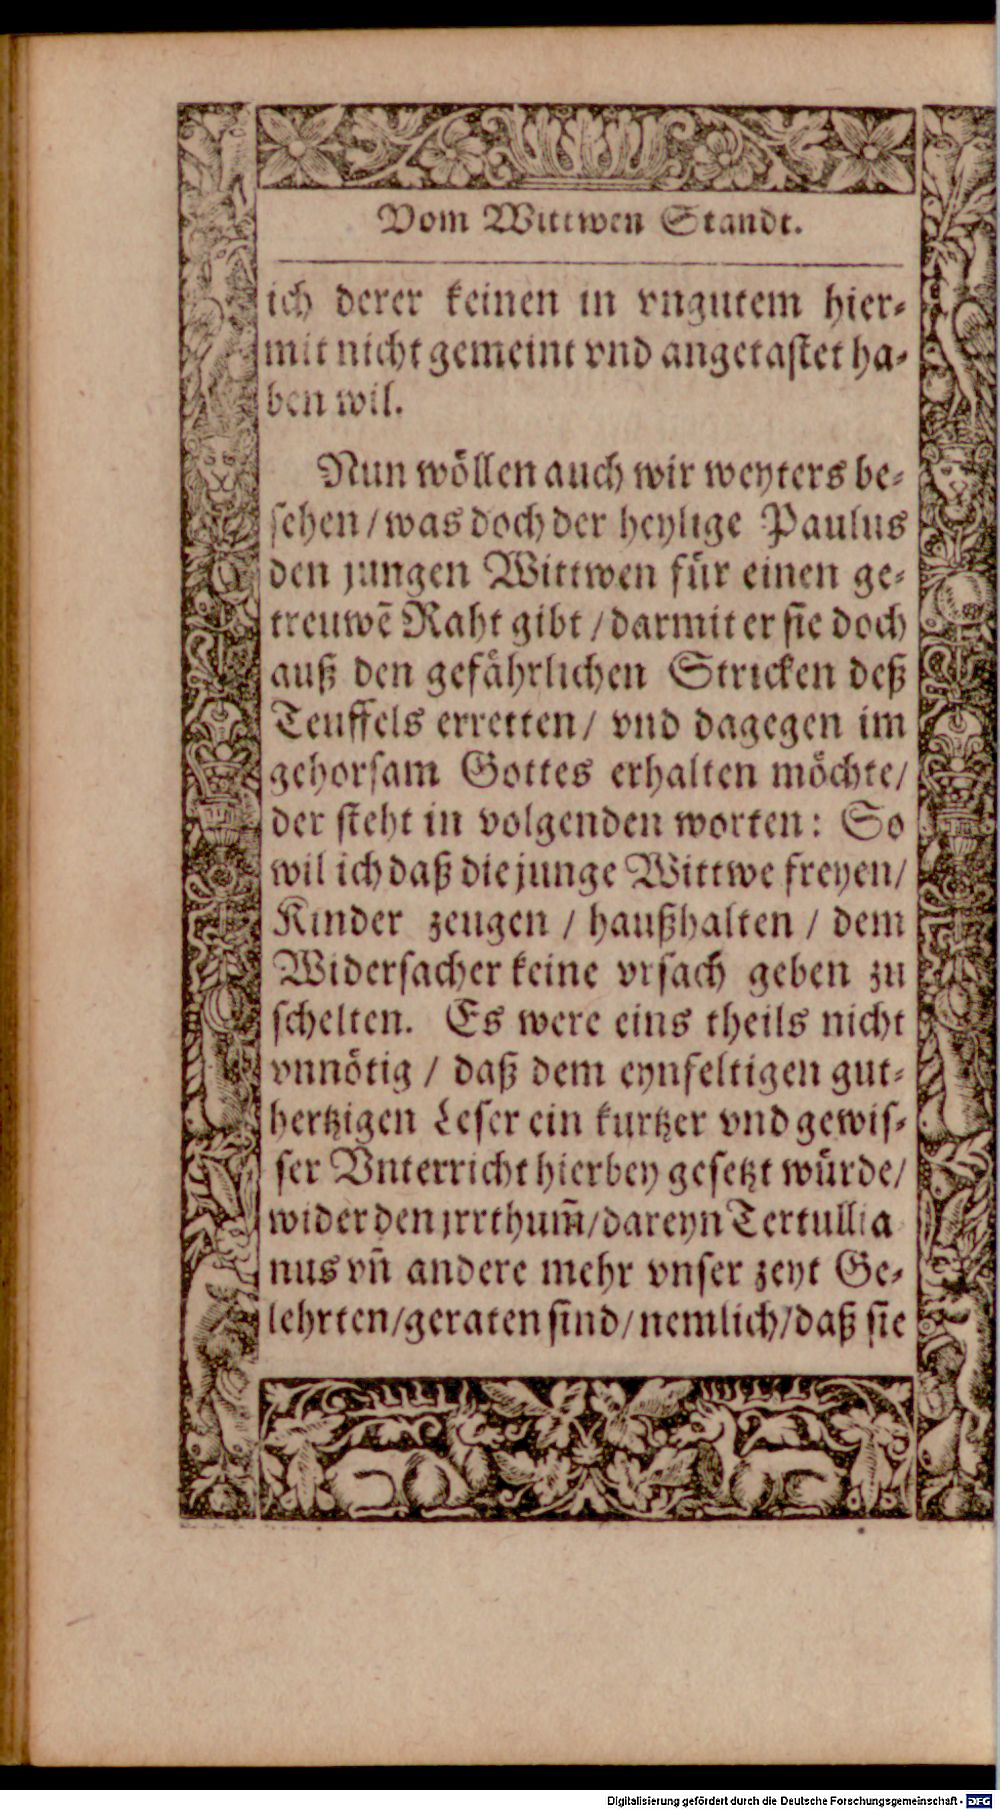 Vom Wittwen Standt.
ich derer keinen in vngutem hier⸗
mit nicht gemeint vnd angetastet ha⸗
ben wil.
Nun wöllen auch wir weyters be⸗
sehen / was doch der heylige Paulus
den jungen Wittwen für einen ge⸗
treuwē Raht gibt / darmit er sie doch
auß den gefährlichen Stricken deß
Teuffels erretten / vnd dagegen im
gehorsam Gottes erhalten möchte /
der steht in volgenden worten : So
wil ich daß die junge Wittwe freyen /
Kinder zeugen / haußhalten / dem
Widersacher keine vrsach geben zu
schelten. Es were eins theils nicht
vnnötig / daß dem eynfeltigen gut⸗
hertzigen Leser ein kurtzer vnd gewis⸗
ser Vnterricht hierbey gesetzt würde /
wider den jrrthum̄ / dareyn Tertullia
nus vn̄ andere mehr vnser zeyt Ge⸗
lehrten / geraten sind / nemlich / daß sie
Digitalisierung gefördert durch die Deutsche Forschungsgemeinschaft - DFG